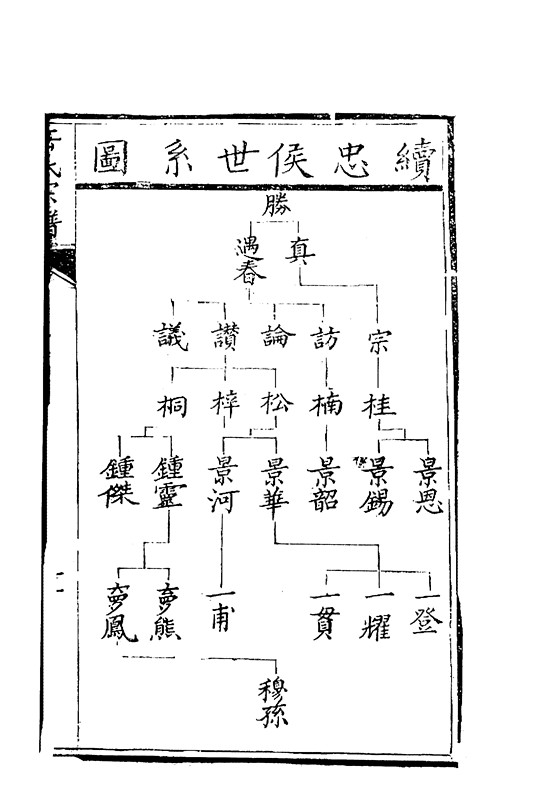 續忠侯世系圖
勝
真 遇春
宗 訪 論 讃 議
桂 楠 松 梓 桐
景恩 景錫 景韶 景華 景河 鍾靈 鍾傑
一登 一耀 一貫 一甫 夢熊 夢鳳
穆孫